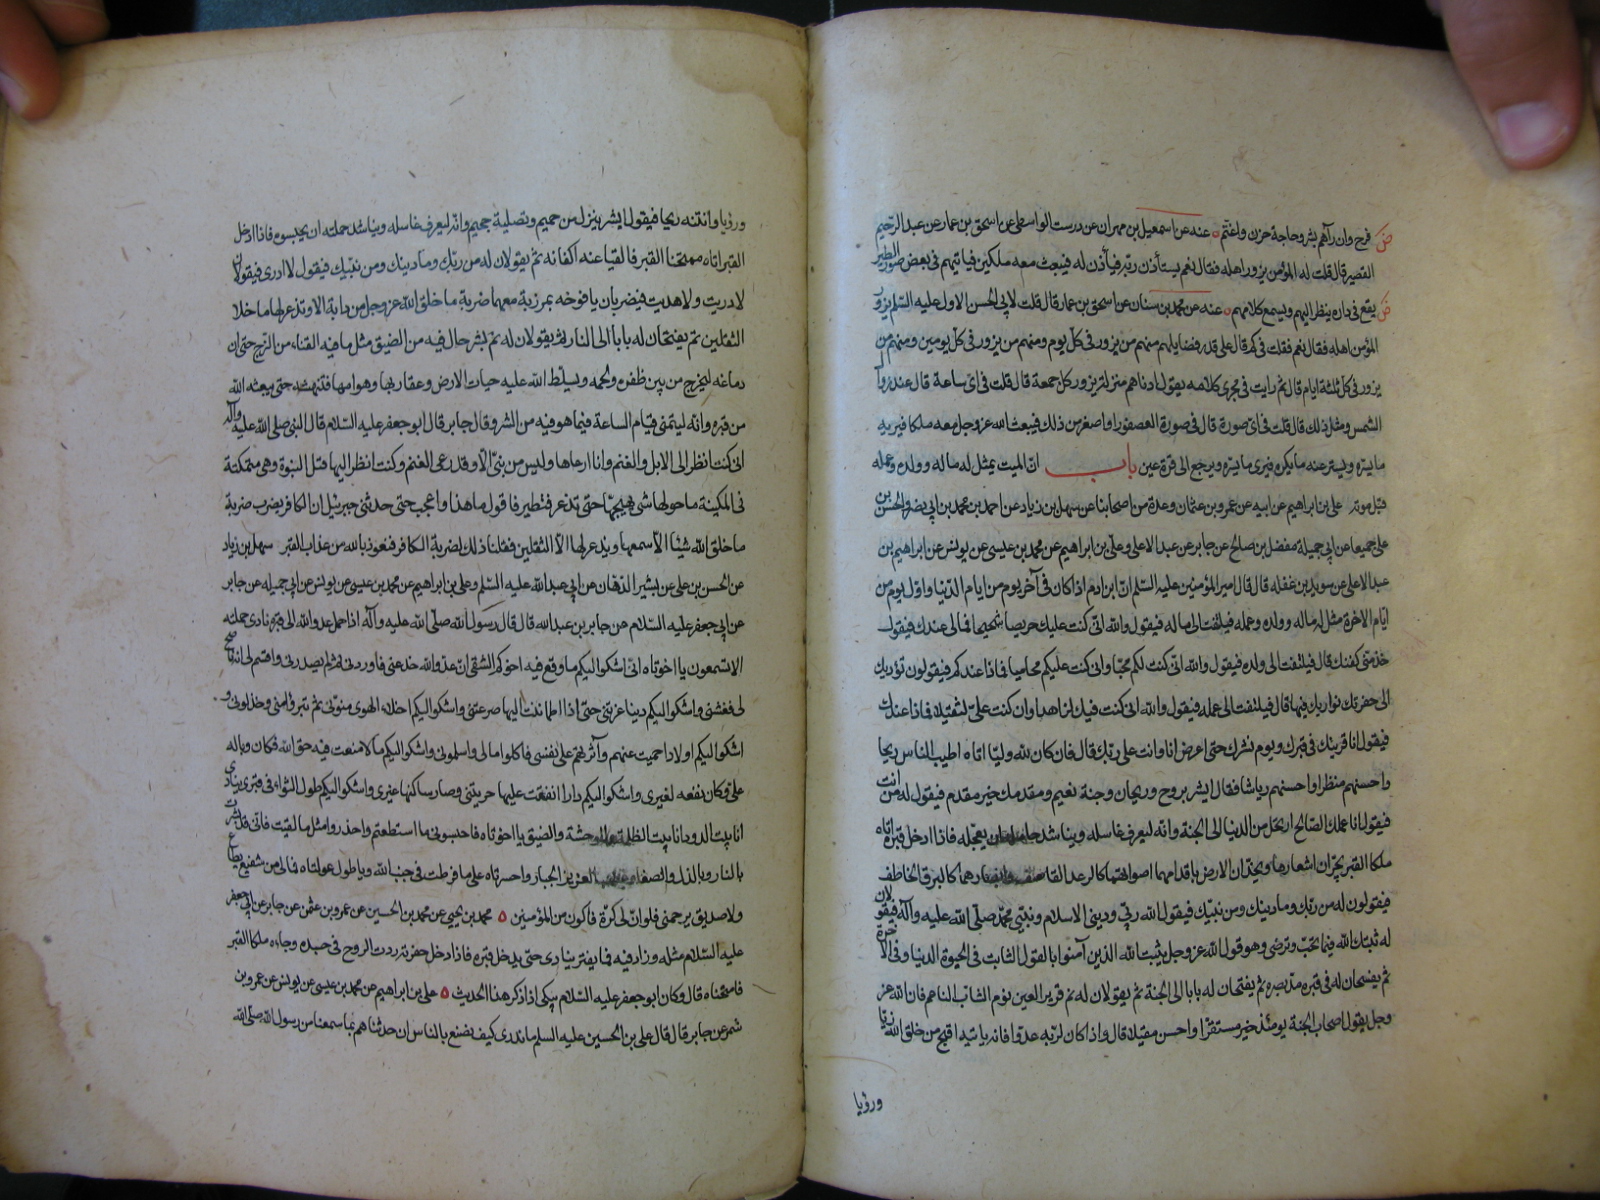 فرح وان رآهم بشر وحاجة حزن واغتم ٥ عنه عن اسمعيل بن مهران عن درست الواسطي عن اسحق بن عمار عن عبد الرحيم
القصير قال قلت له المؤمن يزور اهله فقال نعم يستأذن ربه فيأذن له فيبعث معه ملكين فياتيهم في بعض صور الطير
يقع في داره ينظر اليهم ويسمع كلامهم ٥ عنه عن محمد بن سنان عن اسحق بن عمار قال قلت لابي الحسن الاول عليه السلم يزور
المؤمن اهله فقال نعم فقلت في كم قال على قدر فضايلهم منهم من يزور في كل يوم ومنهم من يزور في كل يومين ومنهم من
يزور في كل ثلثة ايام قال ثم رايت في مجرى كلامه يقول ادناهم منزلة يزور كل جمعة قال قلت في اى ساعة قال عند زوال
الشمس ومثل ذلك قال قلت في اى صورة قال في صورة العصفور او اصغر من ذلك فيبعث الله عز وجل معه ملكا فيريه
ما يسره ويستر عنه ما يكره فيرى ما يسره ويرجع الى قرة عين باب ان الميت يمثل له ماله وولده وعمله
قبل موته علي بن ابراهيم عن ابيه عن عمرو بن عثمان وعدة من اصحابنا عن سهل بن زياد عن احمد بن محمد بن ابي نصر والحسن بن
علي جميعا عن ابي جميلة مفضل بن صالح عن جابر عن عبد الاعلى وعلي بن ابراهيم عن محمد بن عيسى عن يونس عن ابراهيم بن
عبد الاعلى عن سويد بن غفله قال قال امير المؤمنين عليه السلم ان ابن ادم اذا كان في آخر يوم من ايام الدنيا واول يوم من
ايام الاخرة مثل له ماله وولده وعمله فيلتفت الى ماله فيقول والله اني كنت عليك حريصا شحيحا فمالي عندك فيقول
خذ مني كفنك قال فيلتفت الى ولده فيقول والله اني كنت لكم محبا واني كنت عليكم محاميا فماذا عندكم فيقولون نؤديك
الى حفرتك نواريك فيها قال فيلتفت الى عمله فيقول والله اني كنت فيك لزاهدا وان كنت علي لثقيلا فماذا عندك
فيقول انا قرينك في قبرك ويوم نشرك حتى اعرض انا وانت على ربك قال فان كان لله وليا اتاه اطيب الناس ريحا
واحسنهم منظرا واحسنهم رياشا فقال ابشر بروح وريحان وجنة نعيم ومقدمك خير مقدم فيقول له من انت
فيقول انا عملك الصالح ارتحل من الدنيا الى الجنة وانه ليعرف غاسله ويناشد حامله ان يعجله فاذا ادخل قبره اتاه
ملكا القبر يجران اشعارهما ويخدان الارض باقدامهما اصواتهما كالرعد القاصف وابصارهما كالبرق الخاطف
فيقولون له من ربك وما دينك ومن نبيك فيقول الله ربي وديني الاسلام ونبيي محمد صلى الله عليه وآله فيقولان
له ثبتك الله فيما تحب وترضى وهو قول الله عز وجل يثبت الله الذين آمنوا بالقول الثابت في الحيوة الدنيا وفي الاخرة
ثم يفسحان له في قبره مد بصره ثم يفتحان له بابا الى الجنة ثم يقولان له نم قرير العين نوم الشاب الناعم فان الله عز
وجل يقول اصحاب الجنة يومئذ خير مستقرا واحسن مقيلا قال واذا كان لربه عدوا فانه ياتيه اقبح من خلق الله زيا
ورؤيا
ورؤيا وانتنه ريحا فيقول ابشر بنزل من حميم وتصلية جحيم وانه ليعرف غاسله ويناشد حملته ان يحبسوه فاذا ادخل
القبر اتاه ممتحنا القبر فالقيا عنه اكفانه ثم يقولان له من ربك وما دينك ومن نبيك فيقول لا ادري فيقولان
لا دريت ولا هديت فيضربان يافوخه بمرزبة معهما ضربة ما خلق الله عز وجل من دابة الا وتذعر لها ما خلا
الثقلين ثم يفتحان له بابا الى النار ثم يقولان له نم بشر حال فيه من الضيق مثل ما فيه القناة من الزج حتى ان
دماغه ليخرج من بين ظفره ولحمه ويسلط الله عليه حيات الارض وعقاربها وهوامها فتنهشه حتى يبعثه الله
من قبره وانه ليتمنى قيام الساعة فيما هو فيه من الشر وقال جابر قال ابو جعفر عليه السلام قال النبي صلى الله عليه وآله
اني كنت انظر الى الابل والغنم وانا ارعاها وليس من نبي الا وقد رعى الغنم وكنت انظر اليها قبل النبوة وهي متمكنة
في المكينة ما حولها شي يهيجها حتى تذعر فتطير فاقول ما هذا واعجب حتى حدثني جبرئيل ان الكافر يضرب ضربة
ما خلق الله شيئا الا سمعها ويذعر لها الا الثقلين فقلنا ذلك لضربة الكافر فنعوذ بالله من عذاب القبر سهل بن زياد
عن الحسن بن علي عن بشير الدهان عن ابي عبد الله عليه السلم وعلي بن ابراهيم عن محمد بن عيسى عن يونس عن ابي جميله عن جابر
عن ابي جعفر عليه السلام عن جابر بن عبد الله قال قال رسول الله صلى الله عليه وآله اذا حمل عدو الله الى قبره نادى حملته
الا تسمعون يا اخوتاه اني اشكوا اليكم ما وقع فيه اخوكم الشقي ان عدو الله خدعني فاوردني ثم لم يصدرني واقسم لي انه ناصح
لي فغشني واشكوا اليكم دنيا غرتني حتى اذا اطماننت اليها صرعتني واشكوا اليكم اخلاء الهوى منوني ثم تبرؤا مني وخذلوني و
اشكوا اليكم اولادا حميت عنهم وآثرتهم على نفسي فاكلوا مالي واسلموني واشكوا اليكم مالا منعت فيه حق الله فكان وباله
علي وكان نفعه لغيري واشكوا اليكم دارا انفقت عليها حريبتي وصار ساكنها غيري واشكوا اليكم طول الثواء في قبري ينادي
انا بيت الدود انا بيت الظلمة والوحشة والضيق يا اخوتاه فاحبسوني ما استطعتم واحذروا مثل ما لقيت فاني قد بشرت
بالنار وبالذل والصغار وغضب العزيز الجبار واحسرتاه على ما فرطت في جنب الله ويا طول عولتاه فمالي من شفيع يطاع
ولا صديق يرحمني فلو ان لي كرة فاكون من المؤمنين ٥ محمد بن يحيى عن محمد بن الحسين عن عمرو بن عثمن عن جابر عن ابي جعفر
عليه السلام مثله وزاد فيه فما يفتر ينادى حتى يدخل قبره فاذا دخل حفرته ردت الروح في جسده وجاءه ملكا القبر
فامتحناه قال وكان ابو جعفر عليه السلام يبكى اذا ذكر هذا الحديث ٥ علي بن ابراهيم عن محمد بن عيسى عن يونس عن عمرو بن
شمر عن جابر قال قال علي بن الحسين عليه السلم ما ندرى كيف نصنع بالناس ان حدثناهم بما سمعنا من رسول الله صلى الله